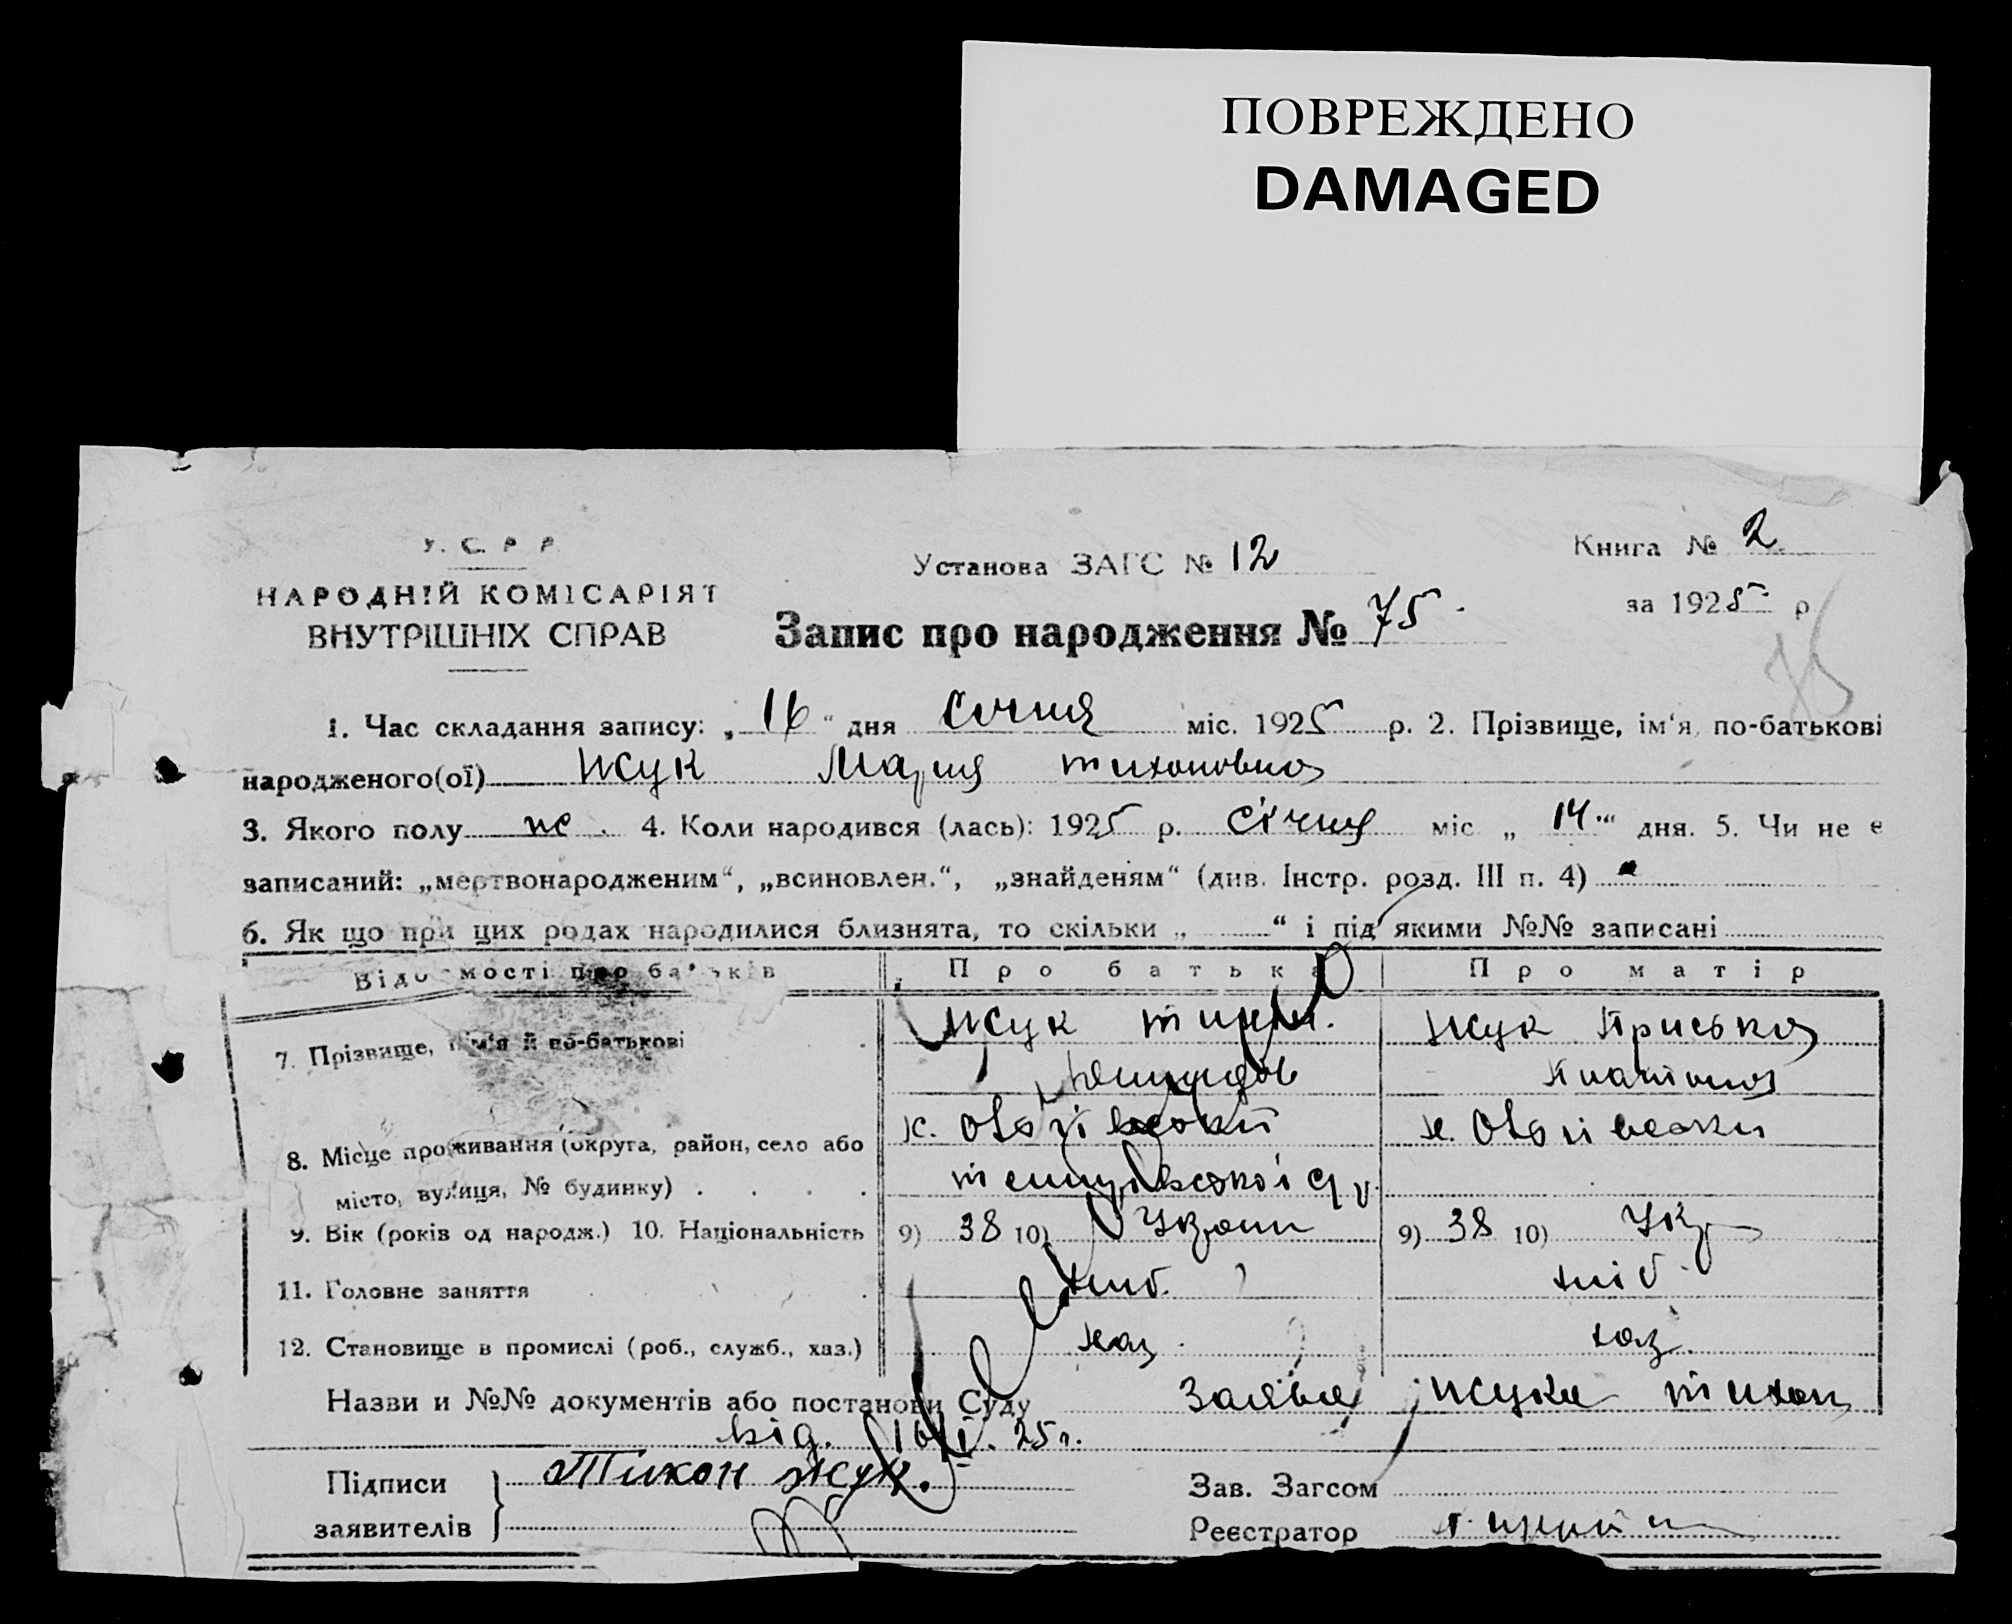 ПОВРЕЖДЕНО
DAMAGED
У. С. Р. Р.
НАРОДНІЙ КОМІСАРІЯТ
ВНУТРІШНІХ СПРАВ
Установа ЗАГС № 12
Книга № 2
за 1925 р
Запис про народження № 75
75
1. Час складання запису: „16“ дня січня міс. 1925 р. 2. Прізвище, ім'я, по-батькові
народженого(ої) Жук Мария тихоновна
3. Якого полу ж. 4. Коли народився (лась): 1925 р. січня міс „14“ дня. 5. Чи не є
записаний: „мертвонародженим“, „всиновлен.“, „знайденям“ (див. Інстр. розд. III п. 4)
6. Як що при цих родах народилися близнята, то скільки „ “ і під якими №№ записані
Відомості про батьків Про батька Про матір
7. Прізвище, ім'я й по-батькові Жук тихон Жук Приська
8. Місце проживання (округа, район, село або х.
місто, вулиця, № будинку)
9. Вік (років од народж.) 10. Національність 9) 38 10) Украин 9) 38 10) Укр
11. Головне заняття хліб. хліб.
12. Становище в промислі (роб., служб., хаз.) хаз. хаз.
Назви и №№ документів або постанови Суду Заява Жука тихон
від. 16/I. 25 г.
Підписи Тихон жук. Зав. Загсом
заявителів Реєстратор